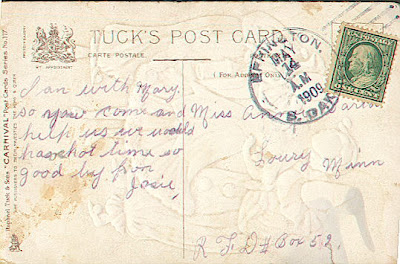 TUCK'S POST CARD
CARTE POSTALE
(FOR ADDRESS ONLY)
BY APPOINTMENT
Raphael Tuck & Sons "CARNIVAL" Post Cards Series No. 117
EFFINGTON,
MAY
14
A M
1909
S. DAK.
I an with Mary,
so you come and
help us we would
hav hot time so
good by from
Josie
Miss Anna
Lowry Minn
R F D # Box 52.